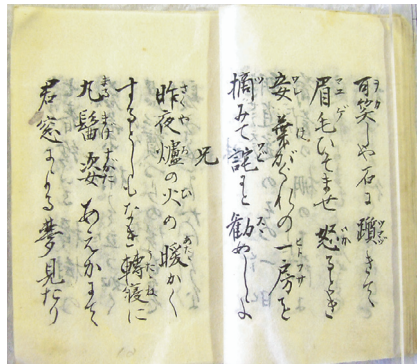 可笑しや石に躓きて
眉毛ひそませ怒るとき
妾葉がくれの一房を
摘みて詫まと勧めしよ
兄
昨夜爐の火の暖かく
するとしもなき轉寝に
丸髷姿あえかにて
君窓による夢見たり